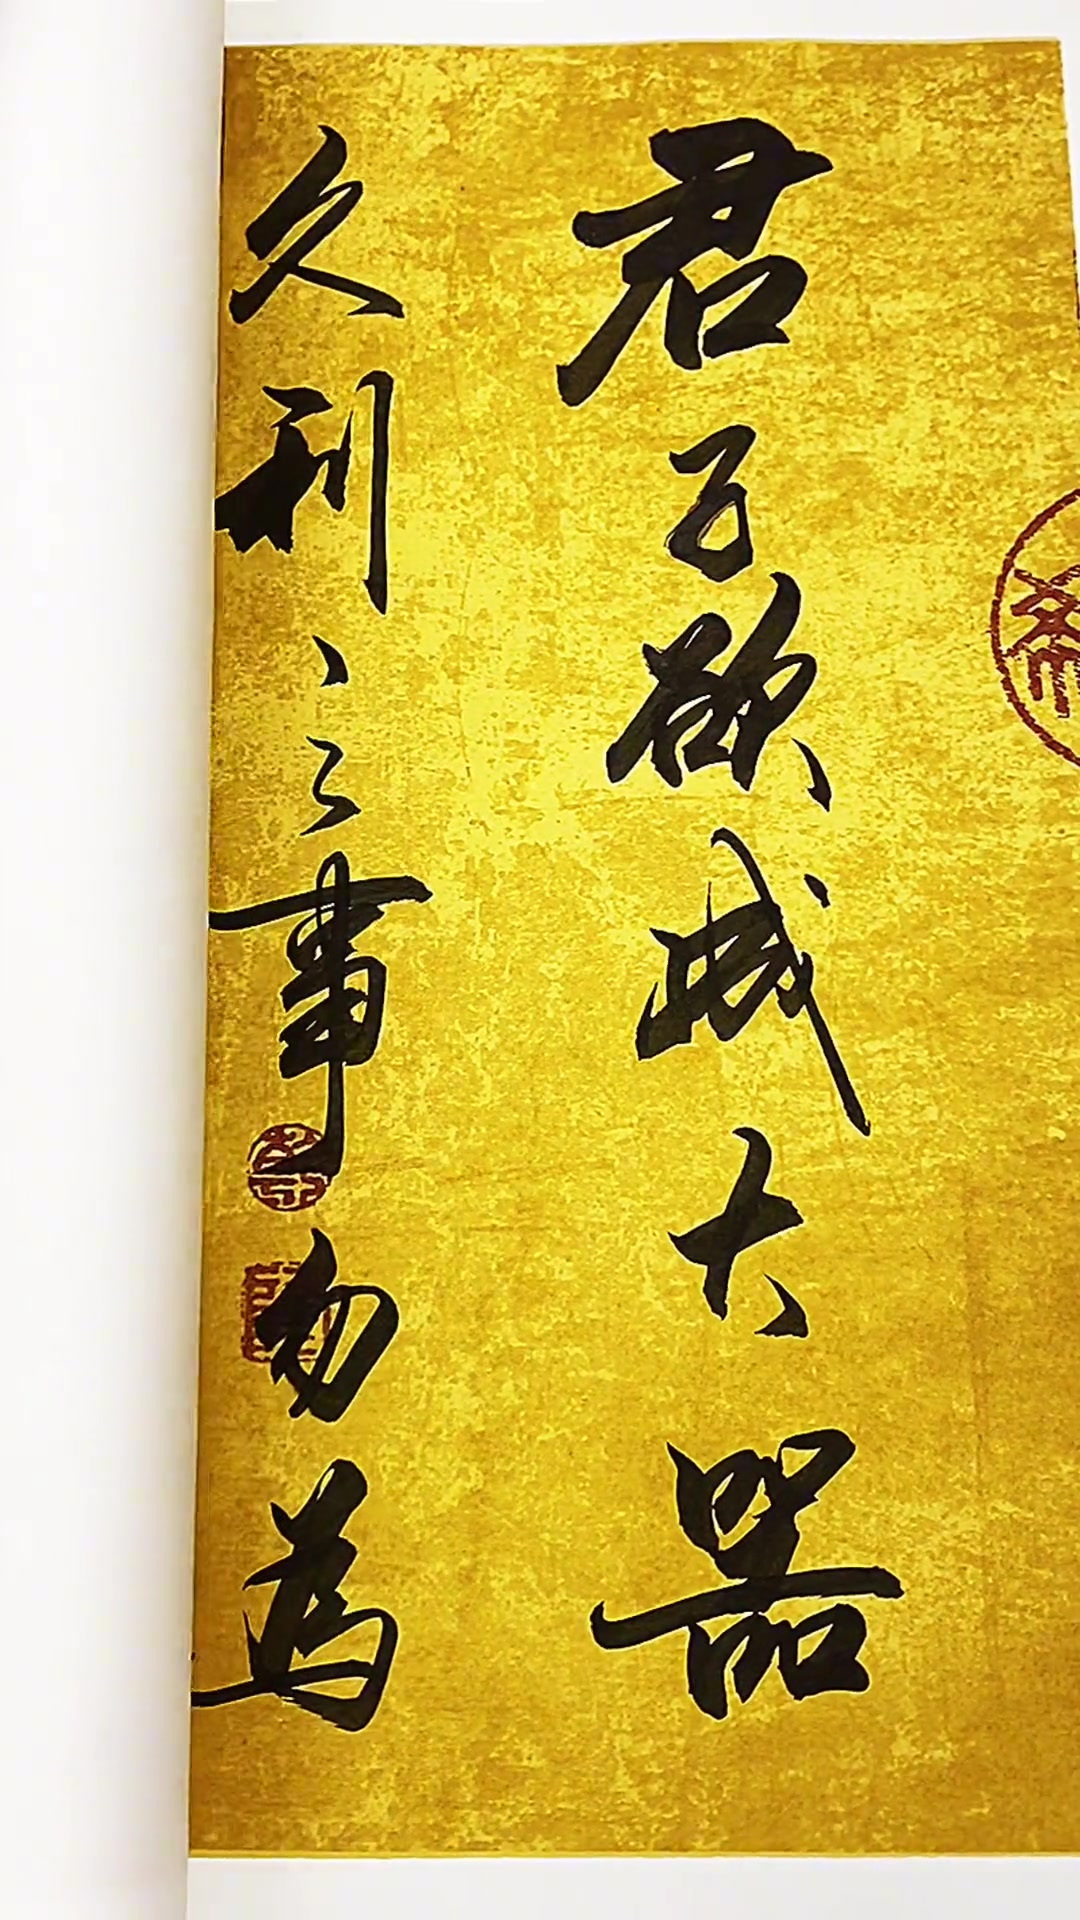 君子欲成大器
久利之事勿為